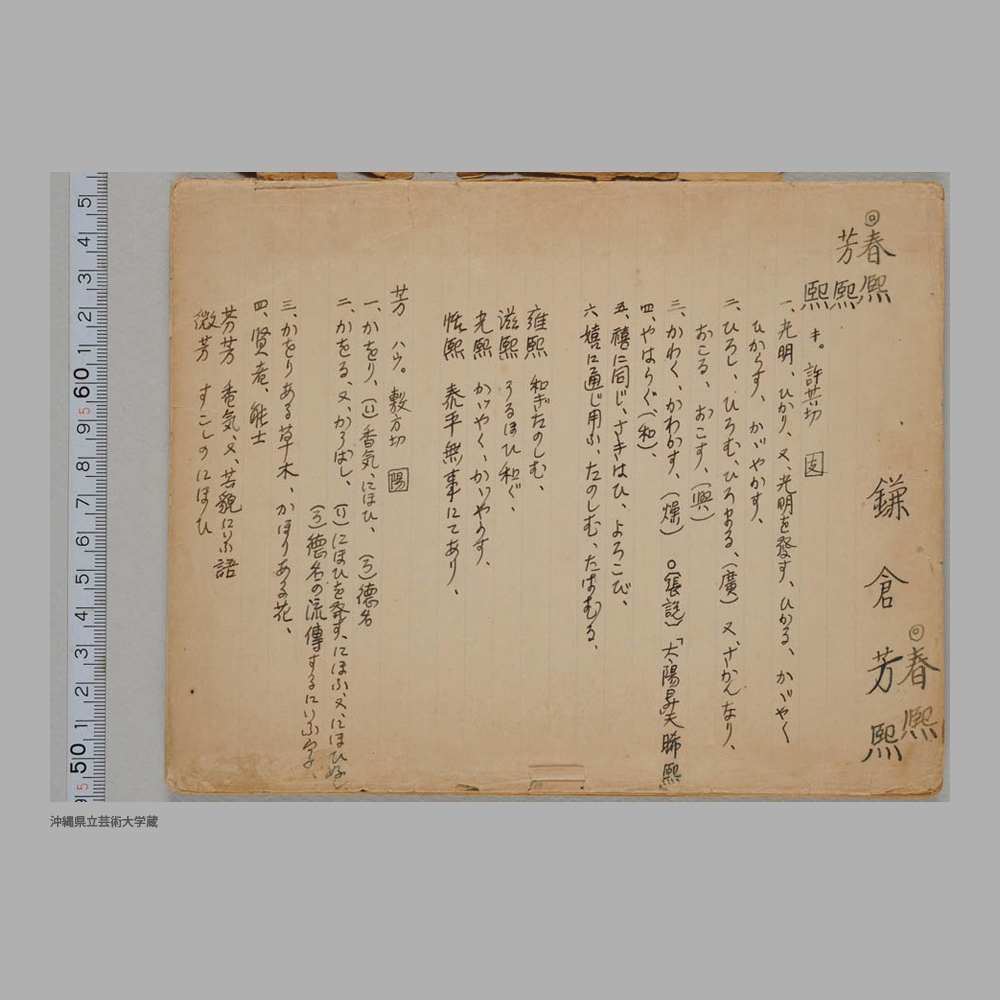 ◎春熙
芳熙
熙 キ。許其切 支
一、光明、ひかり、又、光明を發す、ひかる、かゞやく
ひからす、かゞやかす、
二、ひろし、ひろむ、ひろまる、(廣) 又、さかんなり、
おこる、おこす、(興)
三、かわく、かわかす、(燥) ○(張説)「太陽昇天晞熙
四、やはらぐ(和)、
五、禧に同じ、さきはひ、よろこび、
六、嬉に通じ用ふ、たのしむ、たはむる、
雍熙 和ぎたのしむ、
滋熙 うるほひ和ぐ、
光熙 かゞやく、かゞやかす、
恬熙 泰平無事にてあり、
芳 ハウ。敷方切 陽
一、かをり、(い)香気、にほひ、(ろ)徳名
二、かをる、又、かうばし、(い)にほひを発す、にほふ、又、にほひ好し
(ろ)徳名の流傳するにいふ字、
三、かをりある草木、かほりある花、
四、賢者、能士
芳芳 香気、又、其貌にいふ語
微芳 すこしのにほひ
鎌倉芳熙
◎春熙
5
4
3
2
1
60
9
8
7
6
5
4
3
2
1
50
9
沖縄県立芸術大学蔵